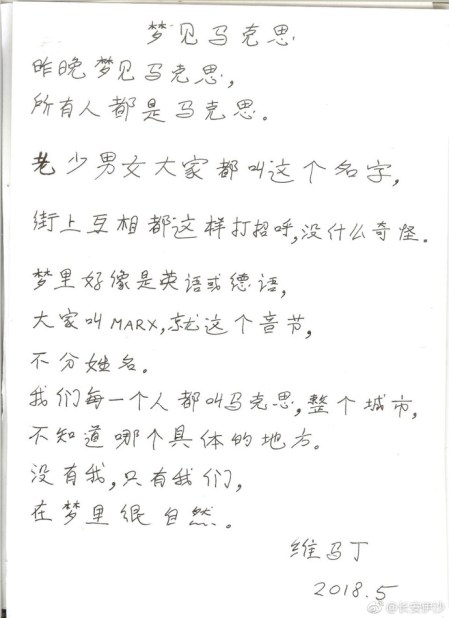 梦见马克思
昨晚梦见马克思,
所有人都是马克思。
老少男女大家都叫这个名字,
街上互相都这样打招呼,没什么奇怪.
梦里好像是英语或德语,
大家叫MARX,就这个音节,
不分姓名。
我们每一个人都叫马克思,整个城市,
不知道哪个具体的地方。
没有我,只有我们,
在梦里很自然。
维马丁
2018.5
@长安伊沙